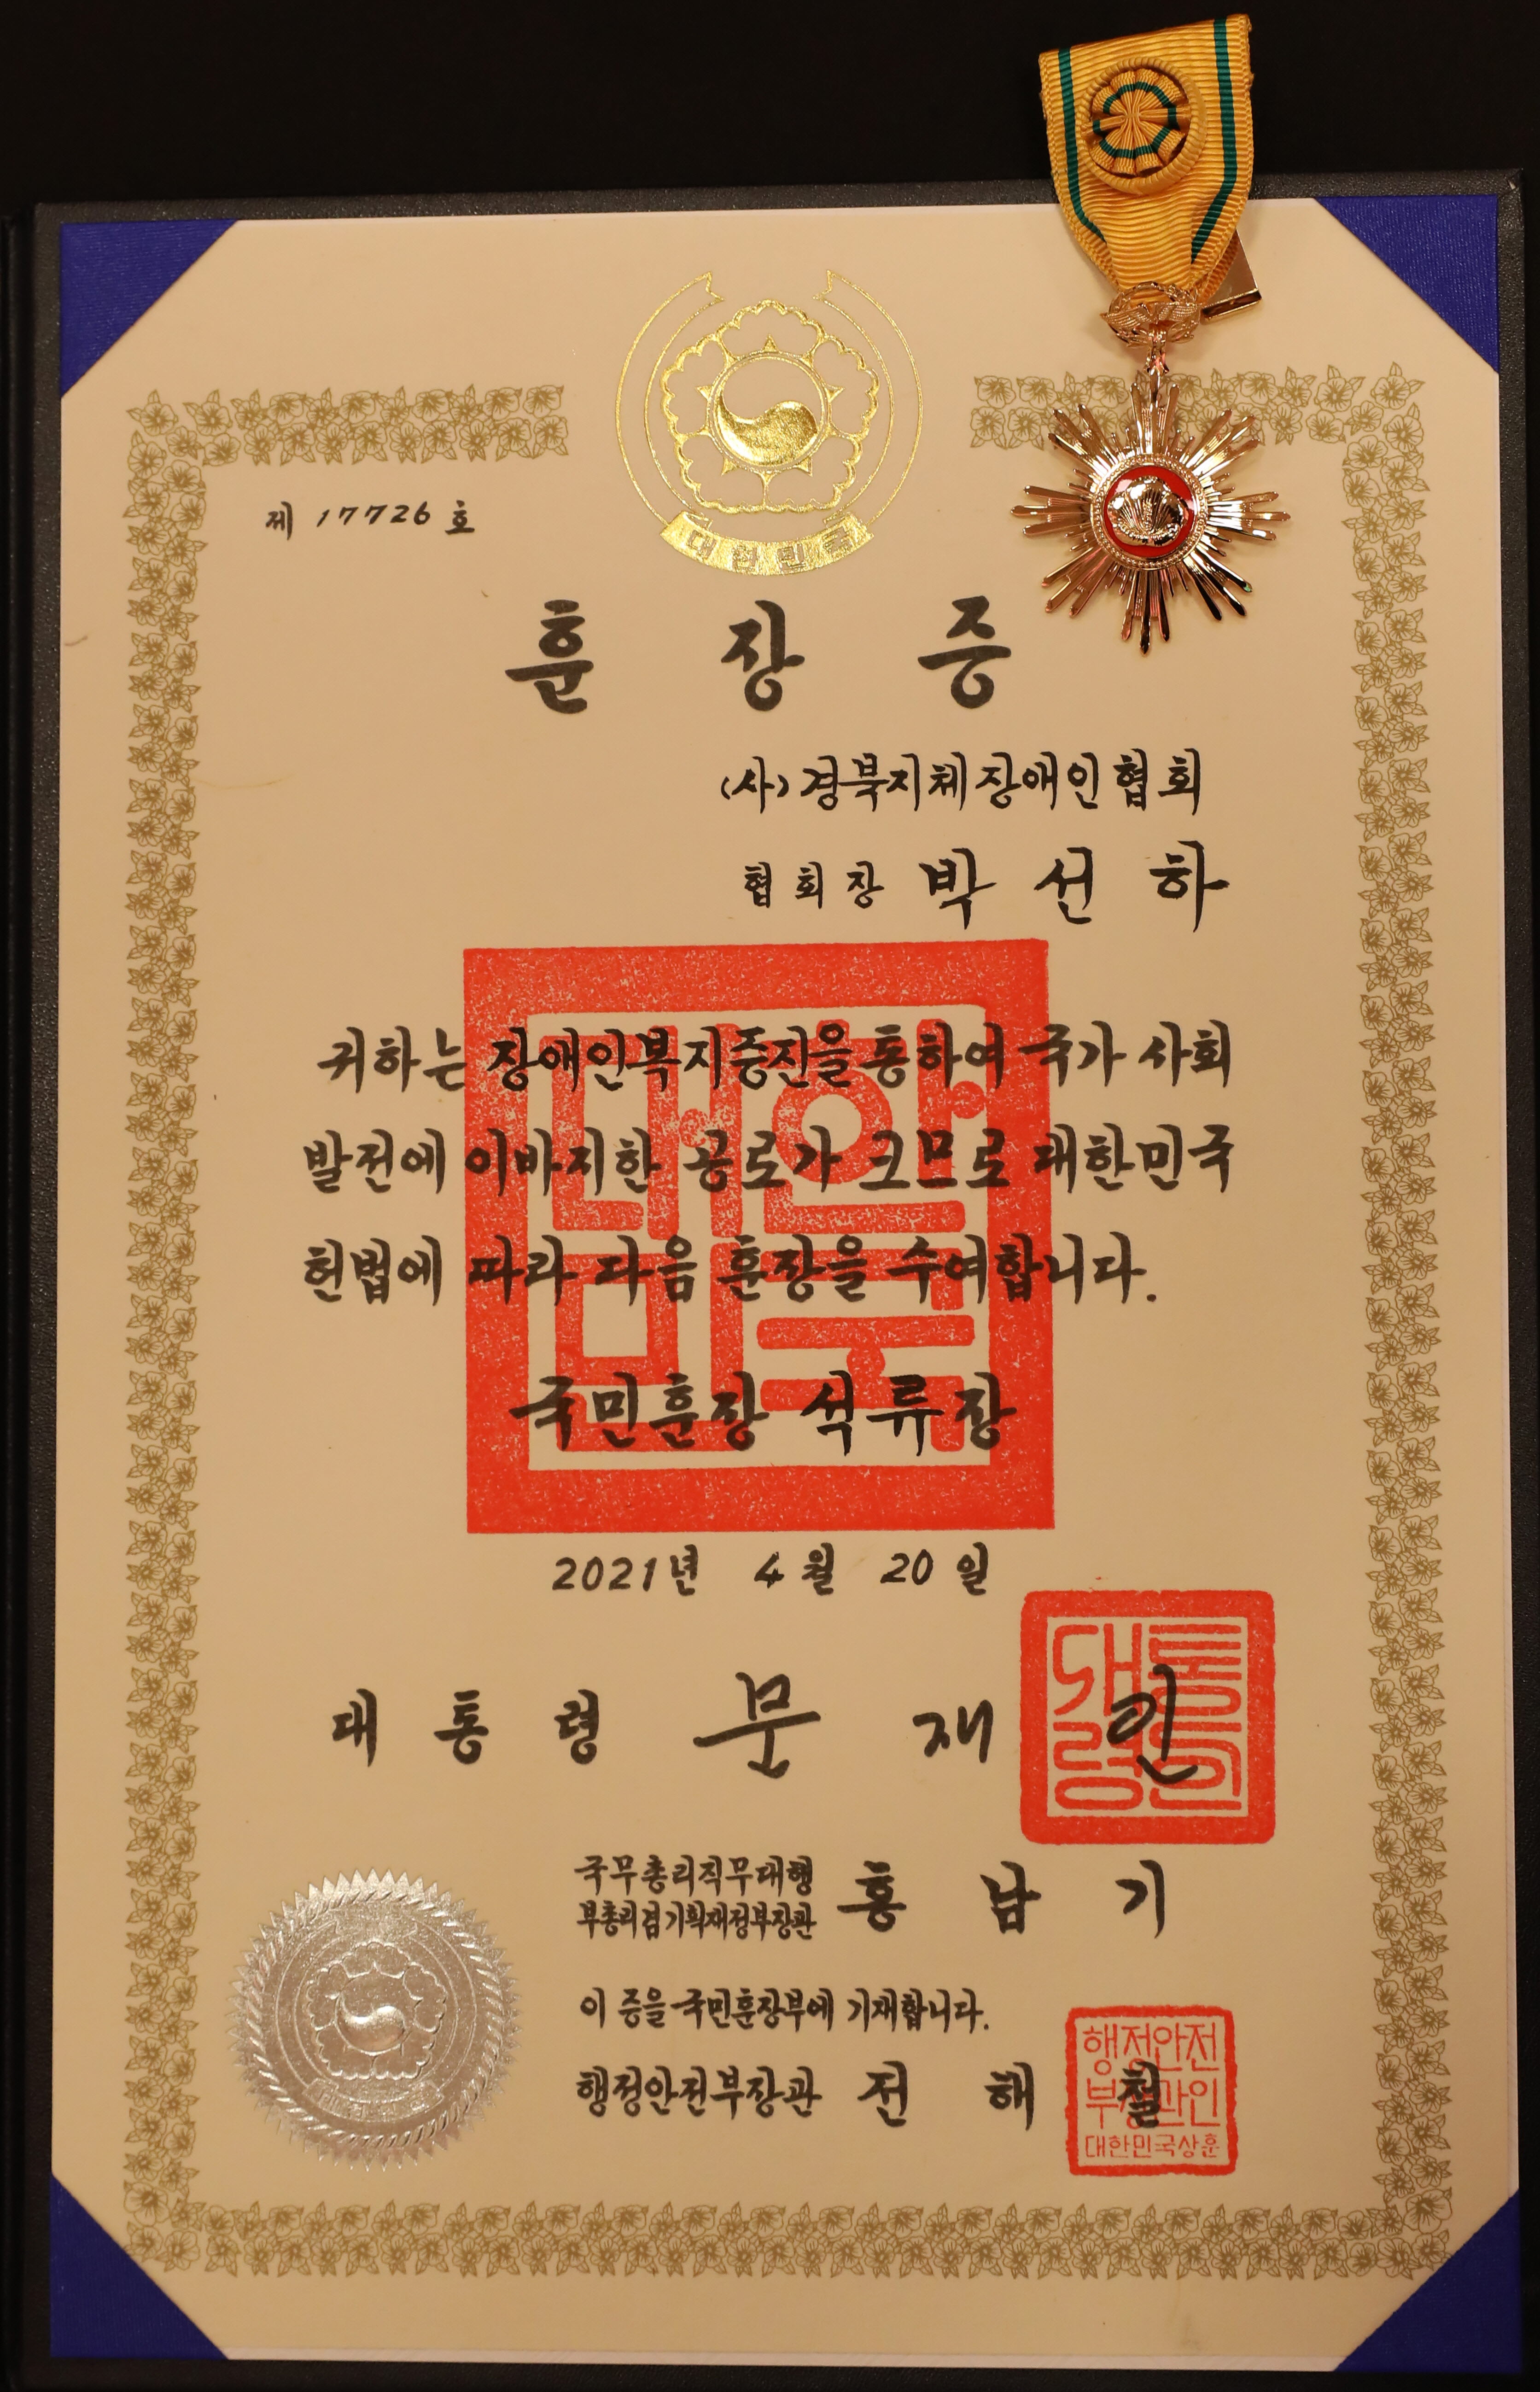 대한민국
제 17726 호
훈 장 증
(사)경북지체장애인협회
협회장 박 선 하
귀하는 장애인복지증진을 통하여 국가 사회
발전에 이바지한 공로가 크므로 대한민국
헌법에 따라 다음 훈장을 수여합니다.
국민훈장 석류장
대한
민국
2021년 4월 20일
대통령 문 재 인
대통
령인
국무총리직무대행
부총리겸기획재정부장관 홍 남 기
이 증을 국민훈장부에 기재합니다.
행정안전부장관 전 해 철
행정안전
부장관인
대한민국상훈
대한민국